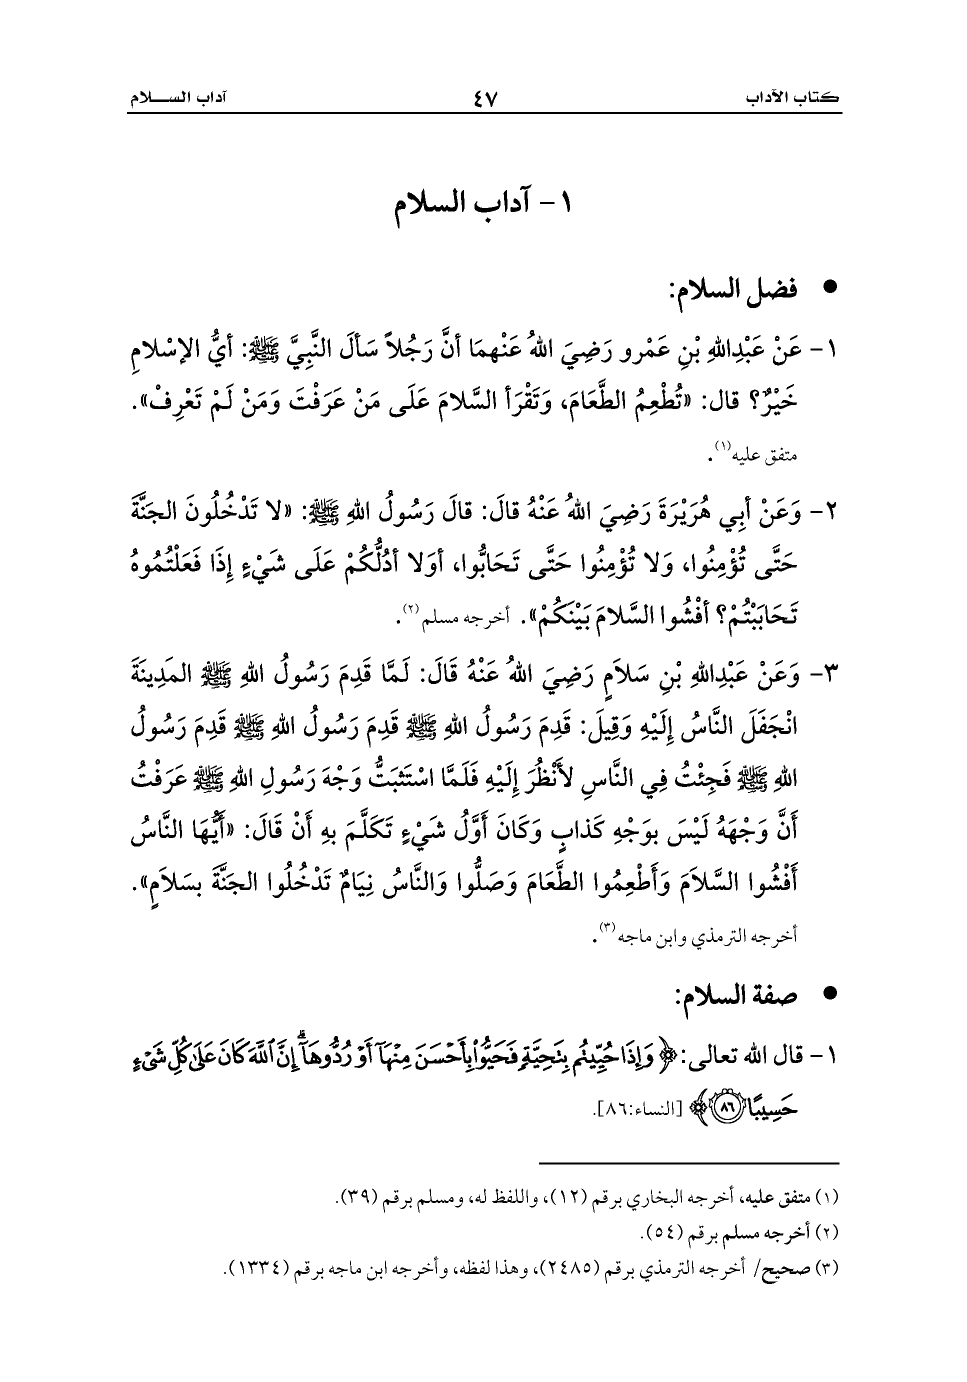 كتاب الآداب ٤٧ آداب الســـلام
١- آداب السلام
● فضل السلام:
١- عَنْ عَبْدِاللهِ بْنِ عَمْرو رَضِيَ اللهُ عَنْهمَا أنَّ رَجُلاً سَألَ النَّبِيَّ ﷺ: أيُّ الإسْلامِ
خَيْرٌ؟ قال: «تُطْعِمُ الطَّعَامَ، وَتَقْرَأ السَّلامَ عَلَى مَنْ عَرَفْتَ وَمَنْ لَمْ تَعْرِفْ».
متفق عليه(١).
٢- وَعَنْ أبِي هُرَيْرَةَ رَضِيَ اللهُ عَنْهُ قالَ: قالَ رَسُولُ اللهِ ﷺ: «لا تَدْخُلُونَ الجَنَّةَ
حَتَّى تُؤْمِنُوا، وَلا تُؤْمِنُوا حَتَّى تَحَابُّوا، أوَلا أدُلُّكُمْ عَلَى شَيْءٍ إذَا فَعَلْتُمُوهُ
تَحَابَبْتُمْ؟ أفْشُوا السَّلامَ بَيْنَكُمْ». أخرجه مسلم(٢).
٣- وَعَنْ عَبْدِاللهِ بْنِ سَلاَمٍ رَضِيَ اللهُ عَنْهُ قَالَ: لَمَّا قَدِمَ رَسُولُ اللهِ ﷺ المَدِينَةَ
انْجَفَلَ النَّاسُ إلَيْهِ وَقِيلَ: قَدِمَ رَسُولُ اللهِ ﷺ قَدِمَ رَسُولُ اللهِ ﷺ قَدِمَ رَسُولُ
اللهِ ﷺ فَجِئْتُ فِي النَّاسِ لأَنْظُرَ إلَيْهِ فَلَمَّا اسْتَثبَتُّ وَجْهَ رَسُولِ اللهِ ﷺ عَرَفْتُ
أَنَّ وَجْهَهُ لَيْسَ بوَجْهِ كَذابٍ وَكَانَ أوَّلُ شَيْءٍ تَكَلَّمَ بهِ أَنْ قَالَ: «أَيُّهَا النَّاسُ
أَفْشُوا السَّلاَمَ وَأَطْعِمُوا الطَّعَامَ وَصَلُّوا وَالنَّاسُ نِيَامٌ تَدْخُلُوا الجَنَّةَ بسَلاَمٍ».
أخرجه الترمذي وابن ماجه(٣).
● صفة السلام:
١- قال الله تعالى: ﴿وَإِذَا حُيِّيتُم بِتَحِيَّةٍ فَحَيُّواْ بِأَحْسَنَ مِنْهَآ أَوْ رُدُّوهَآ ۗ إِنَّ ٱللَّهَ كَانَ عَلَىٰ كُلِّ شَىْءٍ
حَسِيبًا ٨٦﴾ [النساء:٨٦].
(١) متفق عليه، أخرجه البخاري برقم (١٢)، واللفظ له، ومسلم برقم (٣٩).
(٢) أخرجه مسلم برقم (٥٤).
(٣) صحيح/ أخرجه الترمذي برقم (٢٤٨٥)، وهذا لفظه، وأخرجه ابن ماجه برقم (١٣٣٤).